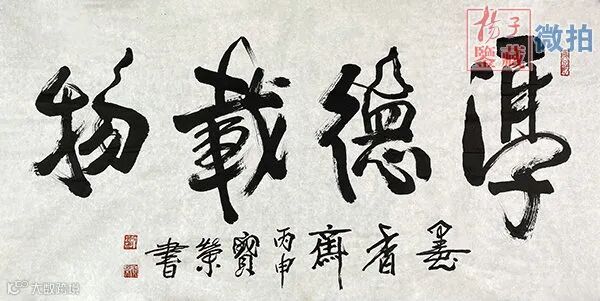 厚德載物
墨香齋 丙申 寶榮書
揚子
鑒藏
微拍
大数跨境